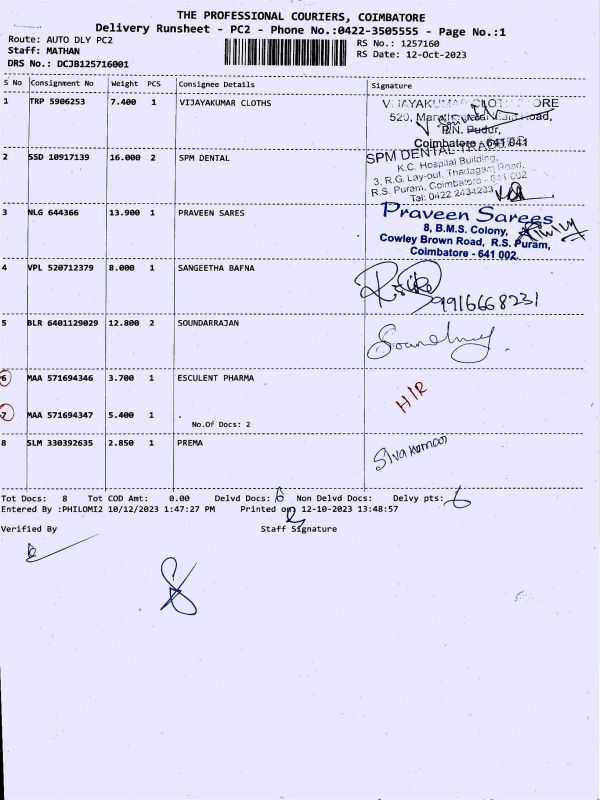 THE PROFESSIONAL COURIERS, COIMBATORE
Delivery Runsheet - PC2 - Phone No.:0422-3505555 - Page No.:1
Route: AUTO DLY PC2
Staff: MATHAN
DRS No.: DCJB125716001
RS No.: 1257160
RS Date: 12-Oct-2023
S No Consignment No Weight PCS Consignee Details Signature
1 TRP 5906253 7.400 1 VIJAYAKUMAR CLOTHS
520,
P.N. Pudur,
Coimbatore - 641 041
2 SSD 10917139 16.000 2 SPM DENTAL
SPM DENTAL
K.C. Hospital Building,
3, R.G. Lay-out, Thadagam Road,
R.S. Puram, Coimbatore - 641 002
Tel: 0422 2434233
3 NLG 644366 13.900 1 PRAVEEN SARES
Praveen Sarees
8, B.M.S. Colony,
Cowley Brown Road, R.S. Puram,
Coimbatore - 641 002.
4 VPL 520712379 8.000 1 SANGEETHA BAFNA
9916668231
5 BLR 6401129029 12.800 2 SOUNDARRAJAN
6 MAA 571694346 3.700 1 ESCULENT PHARMA
H/R
7 MAA 571694347 5.400 1
No.Of Docs: 2
8 SLM 330392635 2.850 1 PREMA
Sivakumar
Tot Docs: 8 Tot COD Amt: 0.00 Delvd Docs: 6 Non Delvd Docs: Delvy pts: 6
Entered By :PHILOMI2 10/12/2023 1:47:27 PM Printed on 12-10-2023 13:48:57
Verified By Staff Signature